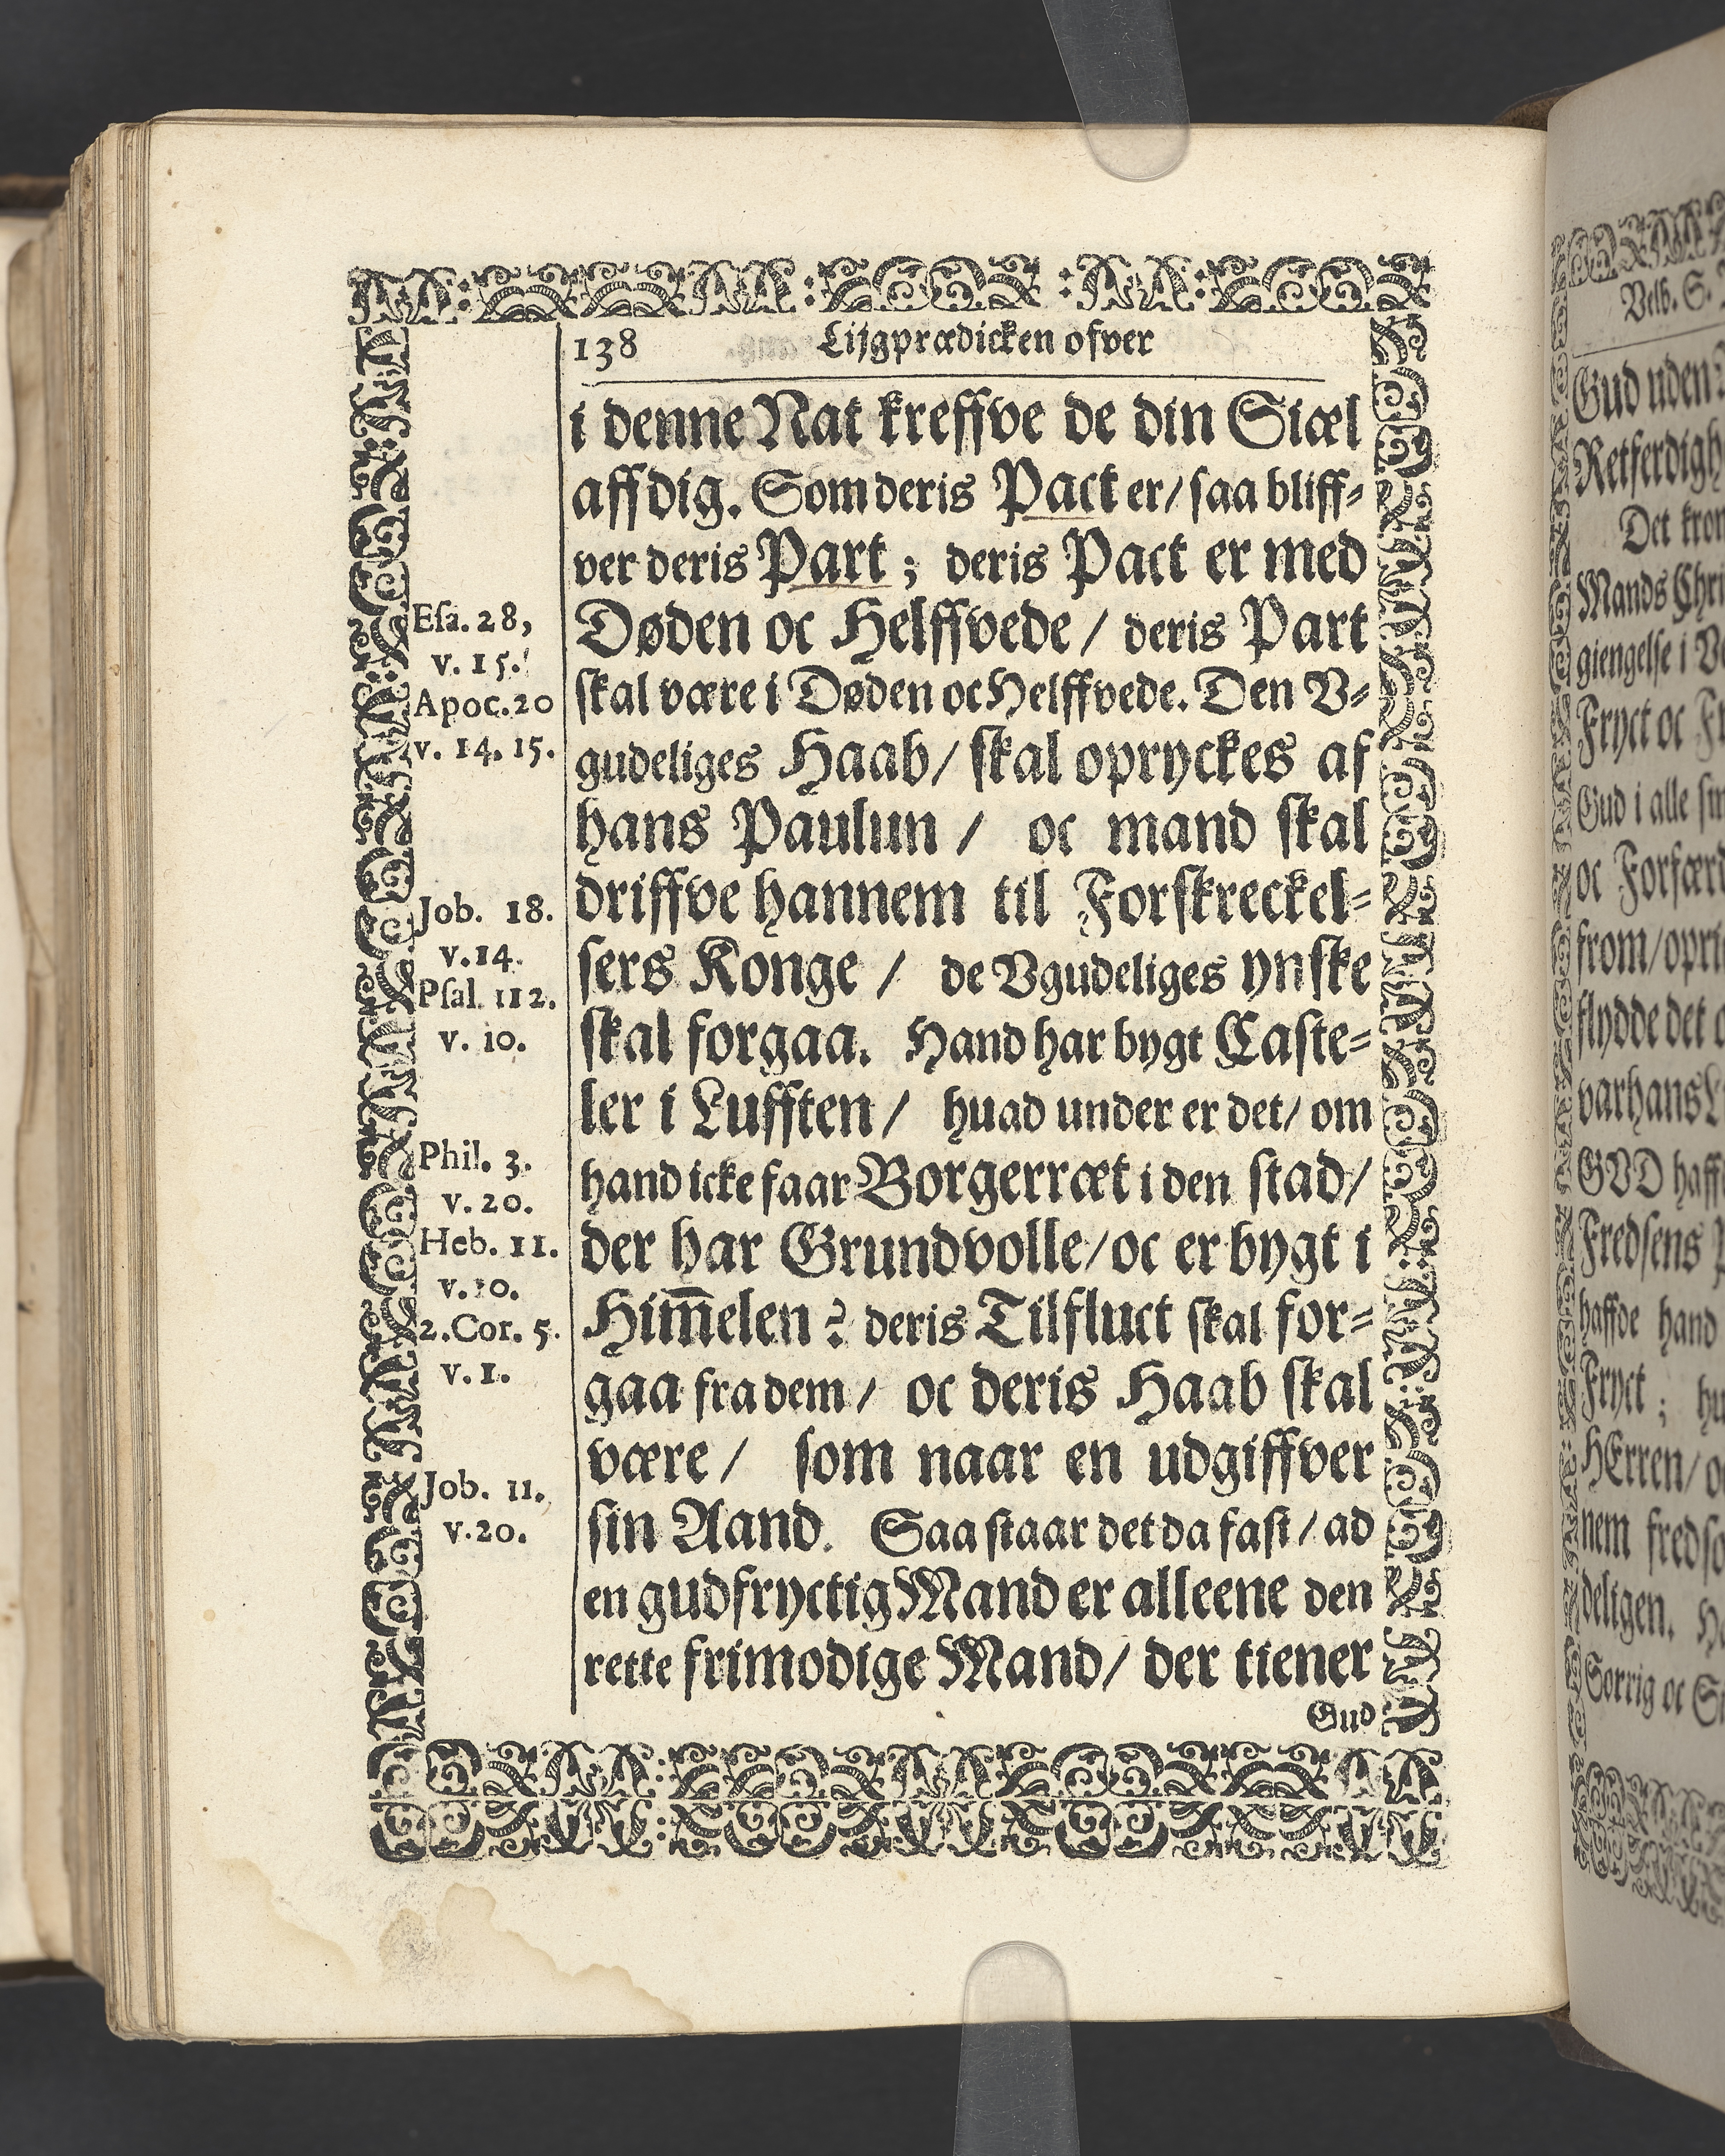 138 Lijgprædicken ofver
i denne Nat kreffve de din Siæl
aff dig. Som deris Pact er/ saa bliff-
ver deris Part; deris Pact er med
Døden oc Helffvede/ deris Part
skal være i Døden oc Helffvede. Den V-
gudeliges Haab/ skal opryckes af
hans Paulun/ oc mand skal
driffve hannem til Forskreckel-
sers Konge/ de Vgudeliges ynske
skal forgaa. Hand har bygt Caste-
ler i Lufften/ huad under er det/ om
hand icke faar Borgerræt i den stad/
der har Grundvolle/ oc er bygt i
Him̅elen? deris Tilfluct skal for-
gaa fra dem/ oc deris Haab skal
være/ som naar en udgiffver
sin Aand. Saa staar det da fast/ ad
en gudfryctig Mand er alleene den
rette frimodige Mand/ der tiener
Gud
Esa. 28,
v. 15.
Apoc. 20
v. 14. 15.
Job. 18.
v. 14.
Psal. 112.
v. 10.
Phil. 3.
v. 20.
Heb. 11.
v. 10.
2. Cor. 5.
v. 1.
Job. 11.
v. 20.
Velb. S.
Gud uden
Det
Mands
giengelse i
Fryct oc
Gud i alle
oc
from/
flydde det
GVD
Fredsens
haffde hand
Fryct;
HErren/
nem
deligen.
Sorrig oc